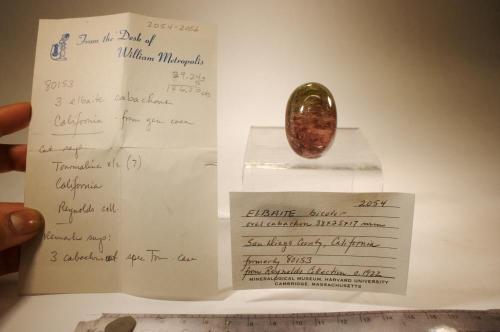 2054-2056
From the Desk of
William Metropolis
29.24g
80153
3 elbaite cabochons
California - from gem case
Cat says
Tourmaline xls (7)
California
Reynolds coll.
Schematic says:
3 cabochons spec Tour. case
2054
ELBAITE bicolor
oval cabochon 38x25x17 mm
San Diego County, California
formerly 80153
from Reynolds Collection c.1922
MINERALOGICAL MUSEUM, HARVARD UNIVERSITY
CAMBRIDGE, MASSACHUSETTS